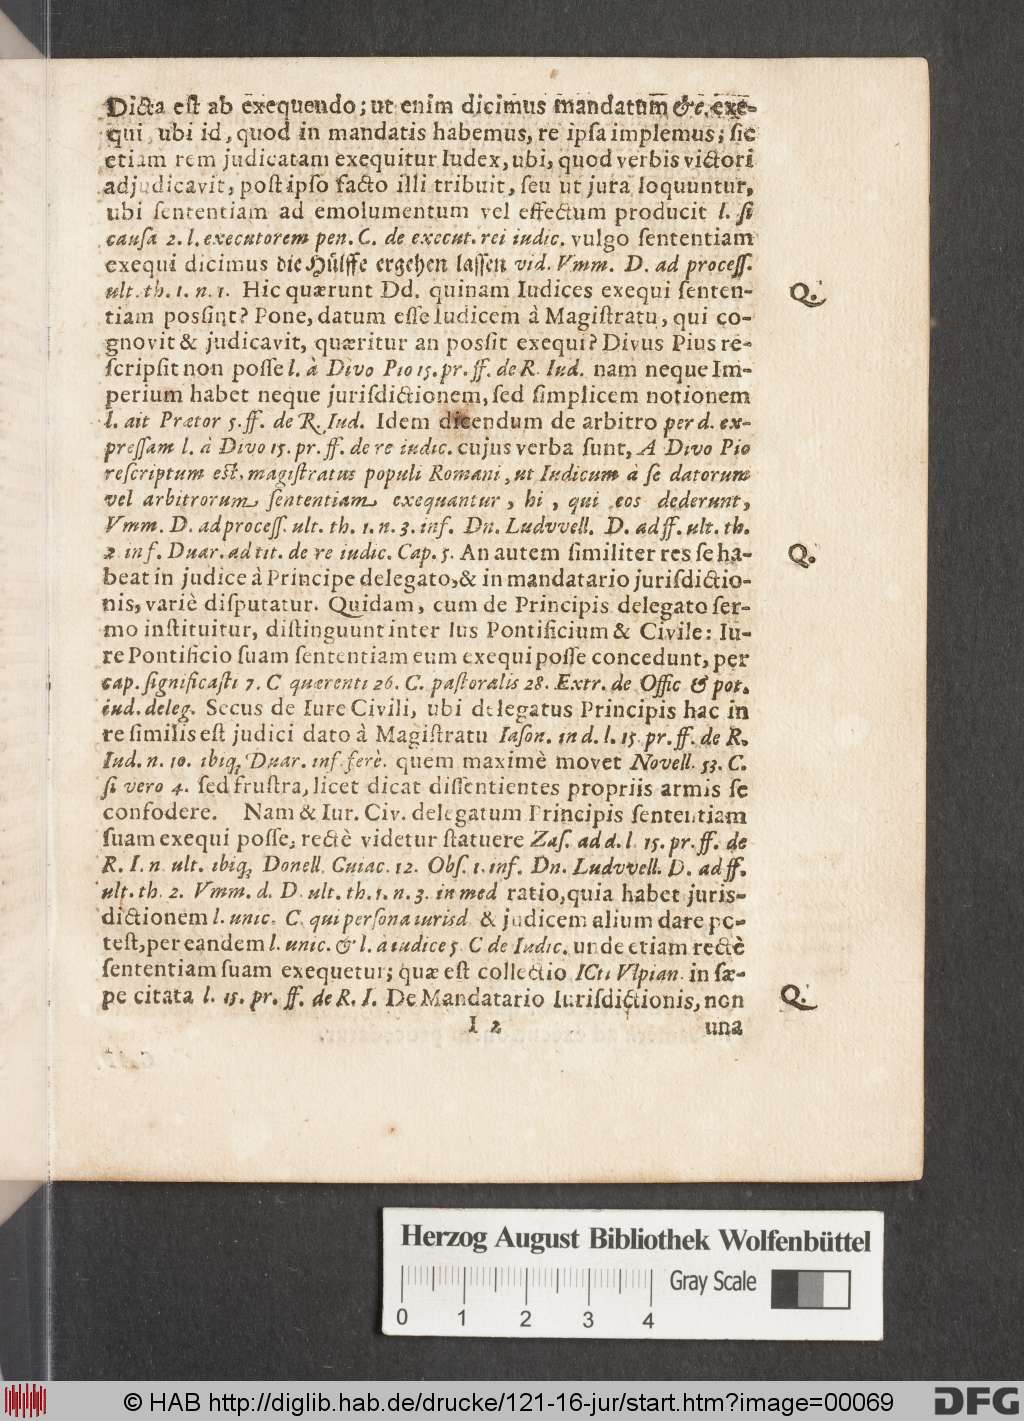 Dicta eſt ab exequendo; ut enim dicimus mandatum &c. exe-
qui, ubi id, quod in mandatis habemus, re ipſa implemus; ſic
etiam rem judicatam exequitur Iudex, ubi, quod verbis victori
adjudicavit, poſt ipſo facto illi tribuit, ſeu ut jura loquuntur,
ubi ſententiam ad emolumentum vel effectum producit l. ſi
cauſa 2. l. executorem pen. C. de execut. rei iudic. vulgo ſententiam
exequi dicimus die Hülffe ergehen laſſen vid. Vmm. D. ad proceſſ.
ult. th. 1. n. 1. Hic quærunt Dd. quinam Iudices exequi ſenten-
Q.
tiam poſſint? Pone, datum eſſe Iudicem à Magiſtratu, qui co-
gnovit & judicavit, quæritur an poſſit exequi? Divus Pius re-
ſcripſit non poſſe l. à Divo Pio 15. pr. ff. de R. Iud. nam neque Im-
perium habet neque jurisdictionem, ſed ſimplicem notionem
l. ait Prætor 5. ff. de R. Iud. Idem dicendum de arbitro per d. ex-
preſſam l. à Divo 15. pr. ff. de re iudic. cujus verba ſunt, A Divo Pio
reſcriptum eſt, magiſtratus populi Romani, ut Iudicum à ſe datorum
vel arbitrorum ſententiam exequantur, hi, qui eos dederunt,
Vmm. D. ad proceſſ. ult. th. 1. n. 3. inf. Dn. Ludvvell. D. ad ff. ult. th.
2 inf. Duar. ad tit. de re iudic. Cap. 5. An autem ſimiliter res ſe ha-
Q.
beat in judice à Principe delegato, & in mandatario jurisdictio-
nis, variè diſputatur. Quidam, cum de Principis delegato ſer-
mo inſtituitur, diſtinguunt inter Ius Pontificium & Civile: Iu-
re Pontificio ſuam ſententiam eum exequi poſſe concedunt, per
cap. ſignificaſti 7. C quærenti 26. C. paſtoralis 28. Extr. de Offic & pot.
iud. deleg. Secus de Iure Civili, ubi delegatus Principis hac in
re ſimilis eſt judici dato à Magiſtratu Iaſon. in d. l. 15 pr. ff. de R.
Iud. n. 10. ibiq; Duar. inf ferè. quem maximè movet Novell. 53. C.
ſi vero 4. ſed fruſtra, licet dicat diſſentientes propriis armis ſe
confodere. Nam & Iur. Civ. delegatum Principis ſententiam
ſuam exequi poſſe, rectè videtur ſtatuere Zaſ. ad d. l. 15. pr. ff. de
R. I. n ult. ibiq; Donell. Cuiac. 12. Obſ. 1. inf. Dn. Ludvvell. D. ad ff.
ult. th. 2. Vmm. d. D. ult. th. 1. n. 3. in med ratio, quia habet juris-
dictionem l. unic. C. qui perſona iurisd & judicem alium dare po-
teſt, per eandem l. unic. & l. à iudice 5 C de Iudic. unde etiam rectè
ſententiam ſuam exequetur; quæ eſt collectio ICti Vlpian. in ſæ-
pe citata l. 15. pr. ff. de R. I. De Mandatario Iurisdictionis, non
Q.
I 2
una
Herzog August Bibliothek Wolfenbüttel
Gray Scale
0 1 2 3 4
© HAB http://diglib.hab.de/drucke/121-16-jur/start.htm?image=00069
DFG